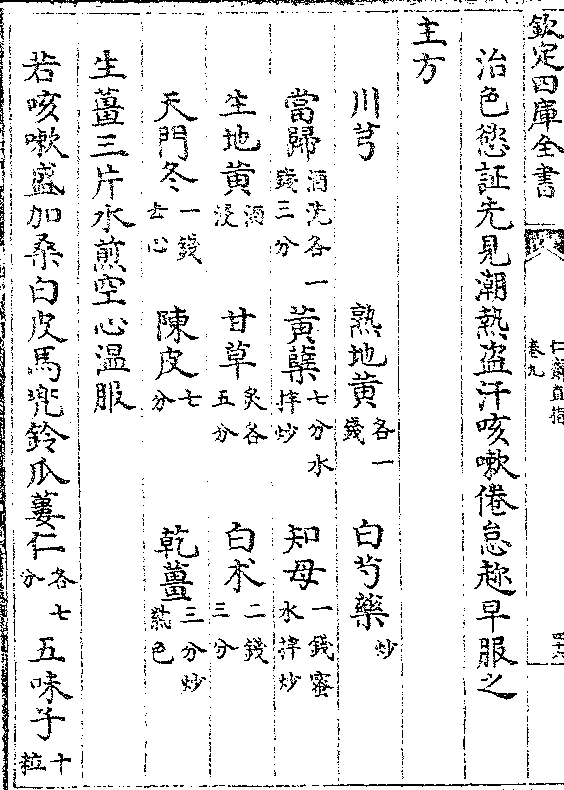 欽定四庫全書
仁齋直指
卷九
治色慾証先見潮熱盜汗咳嗽倦怠趂早服之
主方
川芎 熟地黃各一錢 白芍藥炒
當歸酒洗各一錢三分 黃蘗七分水拌炒 知母一錢蜜水拌炒
生地黃酒浸 甘草炙各五分 白朮二錢三分
天門冬一錢去心 陳皮七分 乾薑三分炒紫色
生薑三片水煎空心温服
若咳嗽盛加桑白皮馬兜鈴瓜蔞仁各七分 五味子十粒